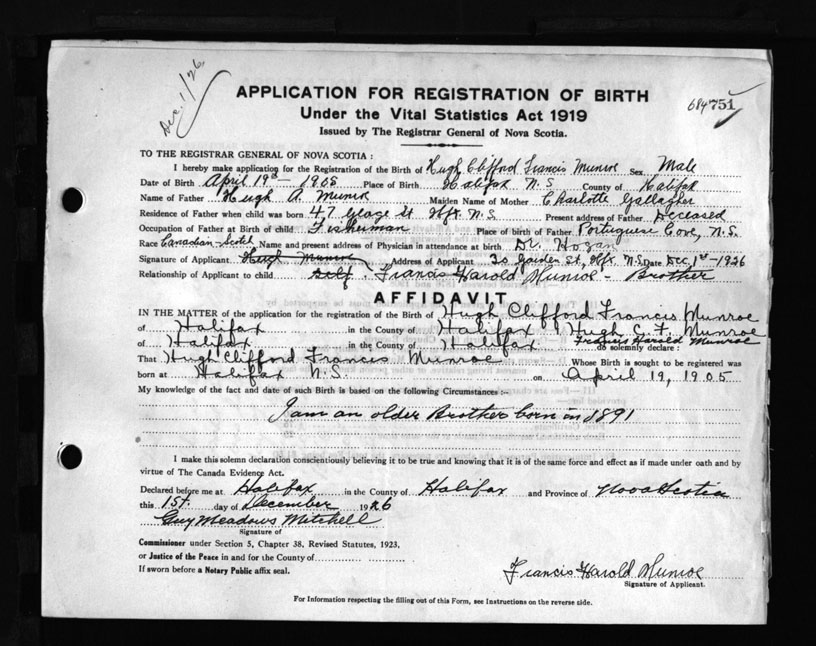 Dec. 1/26
APPLICATION FOR REGISTRATION OF BIRTH
684751
Under the Vital Statistics Act 1919
Issued by The Registrar General of Nova Scotia.
TO THE REGISTRAR GENERAL OF NOVA SCOTIA :
I hereby make application for the Registration of the Birth of Hugh Clifford Francis Munroe Sex Male
Date of Birth April 19th — 1905 Place of Birth Halifax N.S County of Halifax
Name of Father Hugh A. Munroe Maiden Name of Mother Charlotte Gallagher
Residence of Father when child was born 47 St Hfx. N.S Present address of Father Deceased
Occupation of Father at Birth of child Fisherman Place of birth of Father Portuguese Cove, N.S.
Race Canadian-Scotch Name and present address of Physician in attendance at birth Dr. Hogan
Signature of Applicant Hugh Munroe Address of Applicant 20 Garden St, Hfx. N.S. Date Dec. 1st - 1926
Relationship of Applicant to child Self. Francis Harold Munroe - Brother
AFFIDAVIT
IN THE MATTER of the application for the registration of the Birth of Hugh Clifford Francis Munroe
of Halifax in the County of Halifax I Hugh C. F. Munroe
of Halifax in the County of Halifax Francis Harold Munroe do solemnly declare :
That Hugh Clifford Francis Munroe Whose Birth is sought to be registered was
born at Halifax N.S. on April 19, 1905
My knowledge of the fact and date of such Birth is based on the following Circumstances :-
I am an older Brother born in 1891
I make this solemn declaration conscientiously believing it to be true and knowing that it is of the same force and effect as if made under oath and by
virtue of The Canada Evidence Act.
Declared before me at Halifax in the County of Halifax and Province of Nova Scotia
this 1st day of December 1926
Guy Meadows Mitchell
Signature of
Commissioner under Section 5, Chapter 38, Revised Statutes, 1923,
or Justice of the Peace in and for the County of
If sworn before a Notary Public affix seal.
Francis Harold Munroe
Signature of Applicant.
For Information respecting the filling out of this Form, see Instructions on the reverse side.